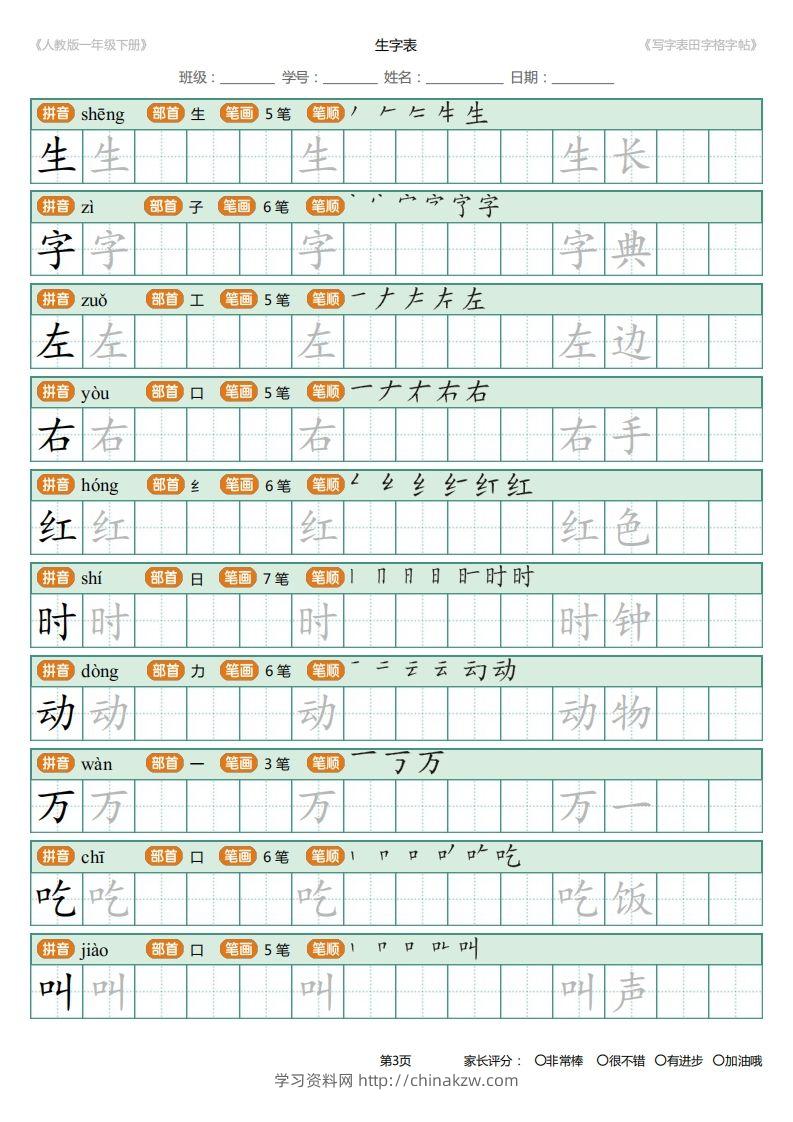 《人教版一年级下册》 生字表 《写字表田字格字帖》
班级：________ 学号：________ 姓名：___________ 日期：_________
拼音 shēng 部首 生 笔画 5 笔 笔顺
生 生 生 生 长
拼音 zì 部首 子 笔画 6 笔 笔顺
字 字 字 字 典
拼音 zuǒ 部首 工 笔画 5 笔 笔顺
左 左 左 左 边
拼音 yòu 部首 口 笔画 5 笔 笔顺
右 右 右 右 手
拼音 hóng 部首 纟 笔画 6 笔 笔顺
红 红 红 红 色
拼音 shí 部首 日 笔画 7 笔 笔顺
时 时 时 时 钟
拼音 dòng 部首 力 笔画 6 笔 笔顺
动 动 动 动 物
拼音 wàn 部首 一 笔画 3 笔 笔顺
万 万 万 万 一
拼音 chī 部首 口 笔画 6 笔 笔顺
吃 吃 吃 吃 饭
拼音 jiào 部首 口 笔画 5 笔 笔顺
叫 叫 叫 叫 声
第3页 家长评分： 〇非常棒 〇很不错 〇有进步 〇加油哦
学习资料网 http://chinakzw.com